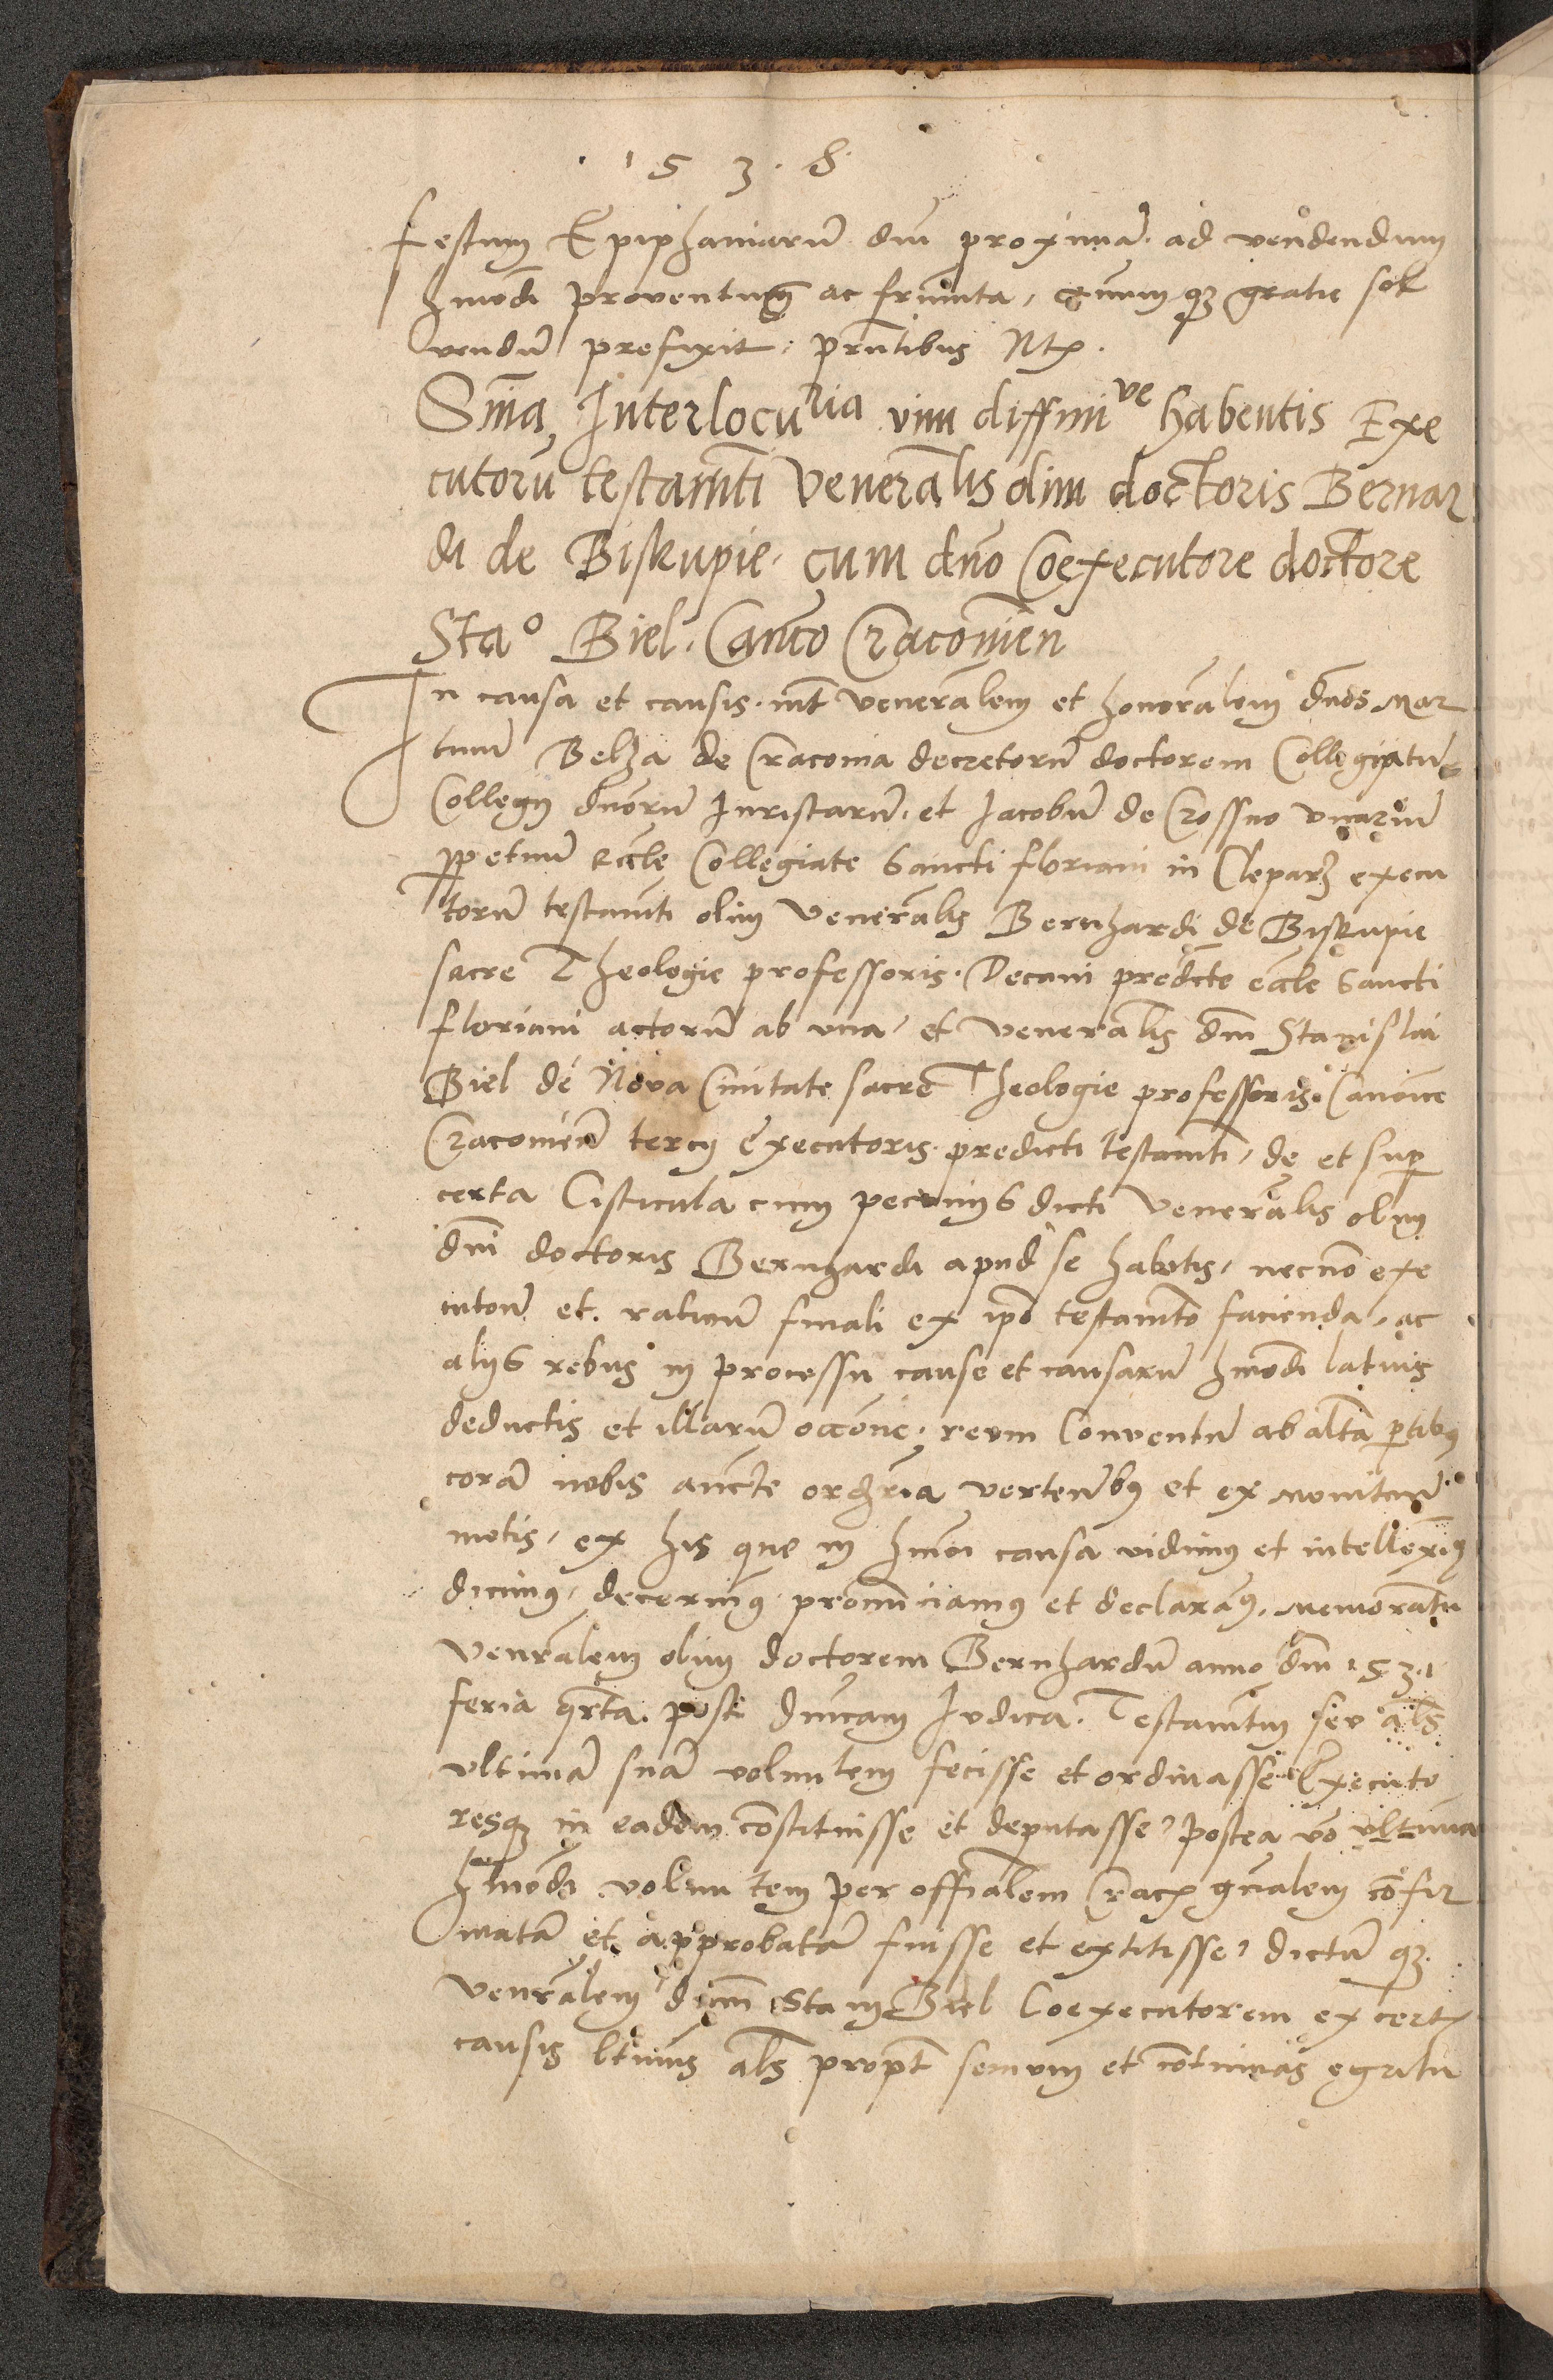 1 5 3 . 8.
festum Epiphaniarū dm̄ proximā. ad vendendum
hmōdi proventum ac frumta, gratie sol
vendū prefixit. prn̄tibus Ntꝫ.
Sniā Interlocuria vim diffiniᵛᵉ habentis Exe
cutorū testamn̄ti Venerālis olim doctoris Bernar
di de Biskupie. cum dn̄o Coexecutore doctore
Staº Biel. Canco Cracovien̄
In causa et causis. int̄ venerālem et honorālem dn̄os Mar
tinū Belza de Cracovia decretorū doctorem Collegiatū
Collegij dn̄orū Juristarū. et Jacobū de Crossno vicariū
ꝑpetuū eccle Collegiate Sancti floriani in Cleparꝫ execu
torū testamn̄ti olim Venerālis Bernhardi de Biskupie
sacre Theologie professoris. Decani predcte eccle Sancti
floriani actorū ab una, et Venerālis dm̄ Stanislai
Biel de Nova Civitate sacre Theologie professoris. Canonice
Cracovien̄ tercij executoris predicti testamn̄ti, de et suꝑ
certa Cisticula cum pecunijs dicti Venerālis olim
dn̄i doctoris Bernhardi apud se habitis, necnō exe
cutōne et. ratione finali ex ipō testamn̄to facienda, ac
alijs rebus in processu cause et causarū hmōdi latius
deductis et illarū occōne, reum Conventū ab altā ꝑtibus
corā nobis aucte ordria verten̄bꝫ et ex
motis, ex his que in hmōi causa vidimꝫ et intelleximꝫ
dicimꝫ, decernimꝫ pronunciamꝫ et declaramꝫ, memoratū
Venrālem olim doctorem Bernhardū anno dm̄ 1531
feria qrta. post dn̄icam Judica. Testamn̄tum seu als̄
ultimā suā voluntem fecisse et ordinasse Executo
resqꝫ in eadem cōstituisse et deputasse, postea vō ultimā
hmōdi voluntem per officialem Cracꝫ gn̄alem cōfir
matā et approbatā fuisse et extitisse, dictū qꝫ.
Venrālem dnm̄ Stanis Biel Coexecutorem ex certꝫ
causis ltimis als̄ propt̄ senium et cōtinuas egritu